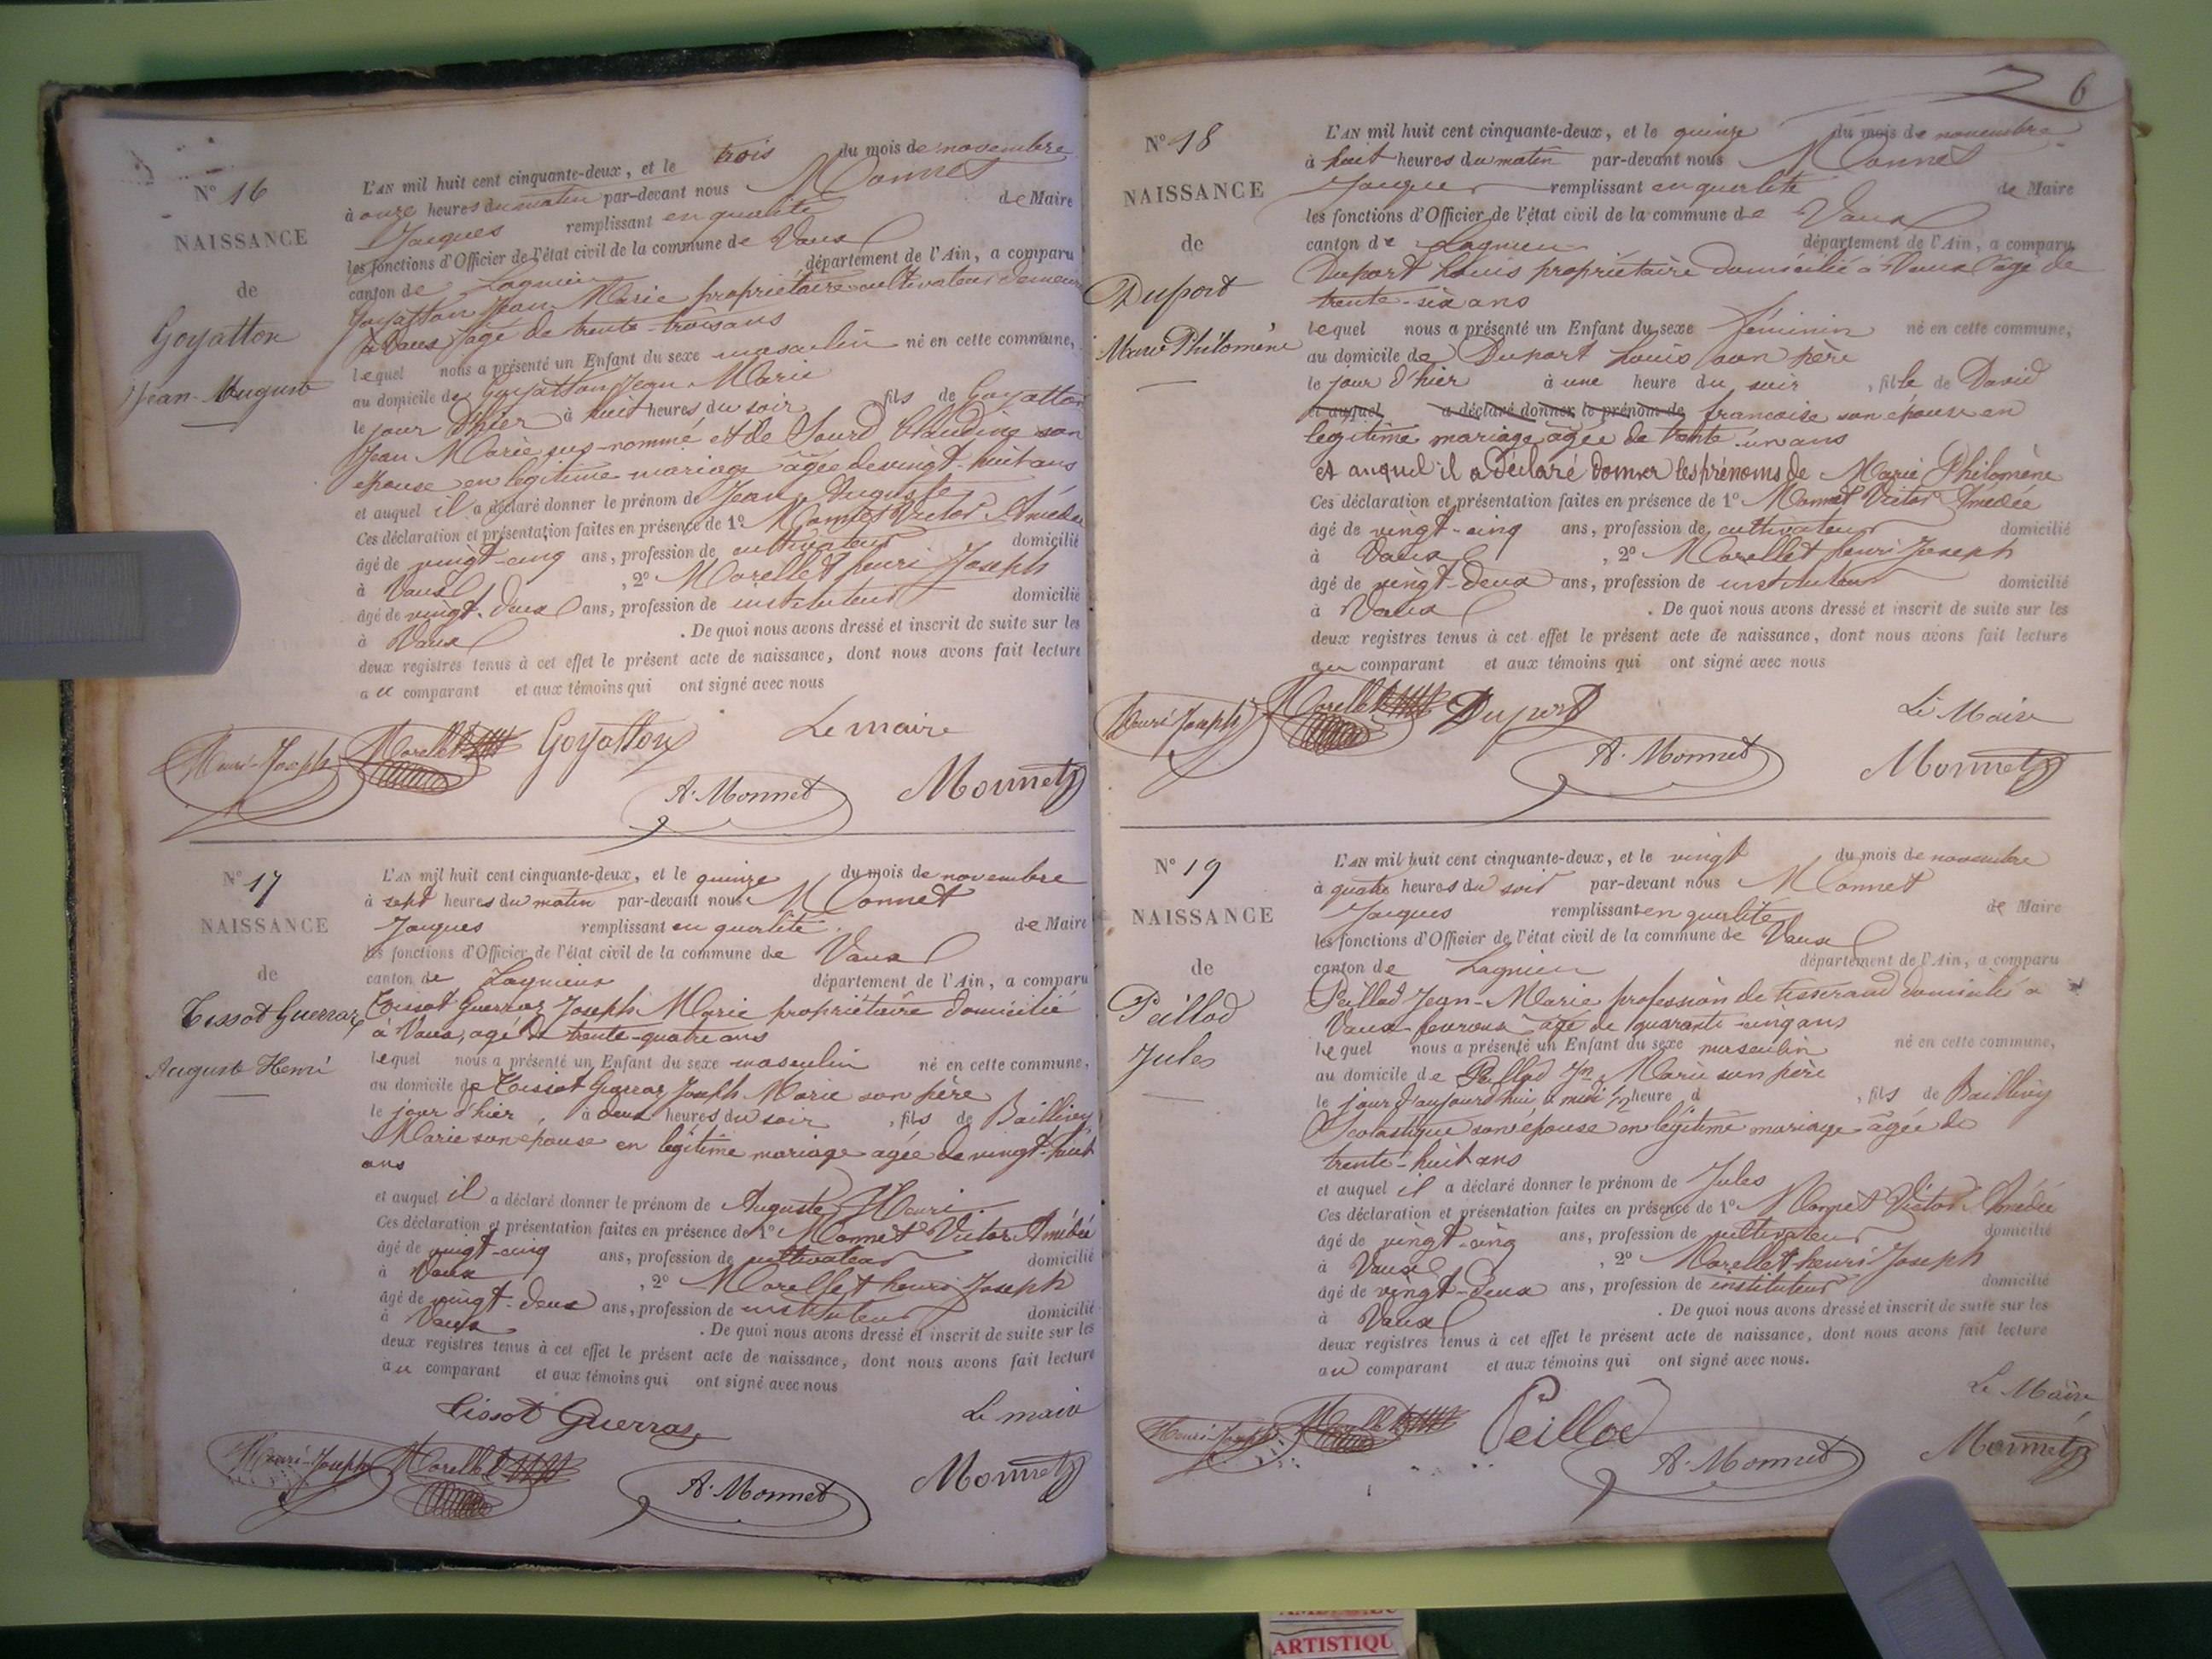 N° 16
NAISSANCE
de
Goyatton
Jean-Auguste
L'AN mil huit cent cinquante-deux, et le trois du mois de novembre
à onze heures du matin par-devant nous Monnet
Jacques remplissant en qualité de Maire
les fonctions d'Officier de l'état civil de la commune de Vaux
canton de Lagnieu département de l'Ain, a comparu
Goyatton Jean Marie propriétaire cultivateur demeur
à Vaux âgé de trente-trois ans
lequel nous a présenté un Enfant du sexe masculin né en cette commune,
au domicile de Goyatton Jean Marie
le jour d'hier à huit heures du soir, fils de Goyatton
Jean Marie sus-nommé et de Sourd Claudine son
épouse en légitime mariage âgée de vingt-huit ans
et auquel il a déclaré donner le prénom de Jean Auguste
Ces déclaration et présentation faites en présence de 1° Monnet Victor Amédée
âgé de vingt-cinq ans, profession de cultivateur domicilié
à Vaux, 2° Morellet henri Joseph
âgé de vingt-deux ans, profession de instituteur domicilié
à Vaux. De quoi nous avons dressé et inscrit de suite sur les
deux registres tenus à cet effet le présent acte de naissance, dont nous avons fait lecture
au comparant et aux témoins qui ont signé avec nous
Henri-Joseph Morellet Goyatton Le maire
A. Monnet Monnet
N° 17
NAISSANCE
de
Tissot Guerraz
Auguste Henri
L'AN mil huit cent cinquante-deux, et le quinze du mois de novembre
à sept heures du matin par-devant nous Monnet
Jacques remplissant en qualité de Maire
les fonctions d'Officier de l'état civil de la commune de Vaux
canton de Lagnieux département de l'Ain, a comparu
Tissot Guerraz Joseph Marie propriétaire domicilié
à Vaux, agé de trente-quatre ans
lequel nous a présenté un Enfant du sexe masculin né en cette commune,
au domicile de Tissot Guerraz Joseph Marie son père
le jour d'hier, à deux heures du soir, fils de Baillivy
Marie son épouse en légitime mariage agée de vingt-huit
ans
et auquel il a déclaré donner le prénom de Auguste Henri
Ces déclaration et présentation faites en présence de 1° Monnet Victor Amédée
âgé de vingt-cinq ans, profession de cultivateur domicilié
à Vaux, 2° Morellet henri Joseph
âgé de vingt-deux ans, profession de instituteur domicilié
à Vaux. De quoi nous avons dressé et inscrit de suite sur les
deux registres tenus à cet effet le présent acte de naissance, dont nous avons fait lecture
au comparant et aux témoins qui ont signé avec nous
Tissot Guerraz Le maire
Henri-Joseph Morellet A. Monnet Monnet
6
N° 18
NAISSANCE
de
Duport
Marie Philomène
L'AN mil huit cent cinquante-deux, et le quinze du mois de novembre
à huit heures du matin par-devant nous Monnet
Jacques remplissant en qualité de Maire
les fonctions d'Officier de l'état civil de la commune de Vaux
canton de Lagnieu département de l'Ain, a comparu
Duport Louis propriétaire domicilié à Vaux âgé de
trente-six ans
lequel nous a présenté un Enfant du sexe féminin né en cette commune,
au domicile de Duport Louis son père
le jour d'hier à une heure du soir, fille de David
et auquel a déclaré donner le prénom de francoise son épouse en
legitime mariage âgée de trente-un ans
et auquel il a déclaré donner les prénoms de Marie Philomène
Ces déclaration et présentation faites en présence de 1° Monnet Victor Amédée
âgé de vingt-cinq ans, profession de cultivateur domicilié
à Vaux, 2° Morellet henri Joseph
âgé de vingt-deux ans, profession de instituteur domicilié
à Vaux. De quoi nous avons dressé et inscrit de suite sur les
deux registres tenus à cet effet le présent acte de naissance, dont nous avons fait lecture
au comparant et aux témoins qui ont signé avec nous
Henri Joseph Morellet Duport Le Maire
A. Monnet Monnet
N° 19
NAISSANCE
de
Peillod
Jules
L'AN mil huit cent cinquante-deux, et le vingt du mois de novembre
à quatre heures du soir par-devant nous Monnet
Jacques remplissant en qualité de Maire
les fonctions d'Officier de l'état civil de la commune de Vaux
canton de Lagnieu département de l'Ain, a comparu
Peillod Jean-Marie profession de tisserand domicilié a
Vaux fevroux âgé de quarante-cinq ans
lequel nous a présenté un Enfant du sexe masculin né en cette commune,
au domicile de Peillod Jn Marie son père
le jour d'aujourd'hui à midi 1/2 heure d, fils de Baillivy
Scolastique son épouse en légitime mariage âgée de
trente-huit ans
et auquel il a déclaré donner le prénom de Jules
Ces déclaration et présentation faites en présence de 1° Monnet Victor Amédée
âgé de vingt-cinq ans, profession de cultivateur domicilié
à Vaux, 2° Morellet henri Joseph
âgé de vingt-deux ans, profession de instituteur domicilié
à Vaux. De quoi nous avons dressé et inscrit de suite sur les
deux registres tenus à cet effet le présent acte de naissance, dont nous avons fait lecture
au comparant et aux témoins qui ont signé avec nous.
Le Maire
Henri-Joseph Morellet Peillod A. Monnet Monnet
ARTISTIQU